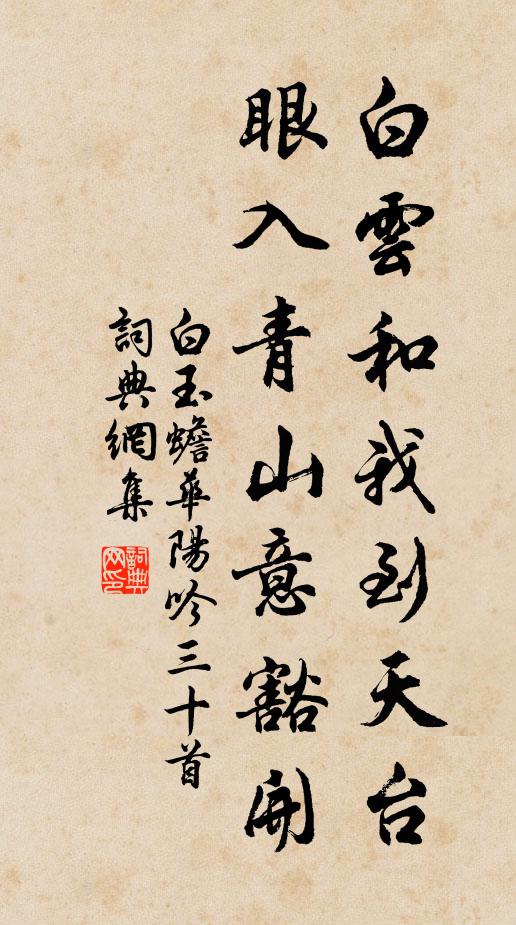 白雲和我到天台
眼入青山意豁開
白玉蟾華陽吟三十首
詞典網集
詞典網印